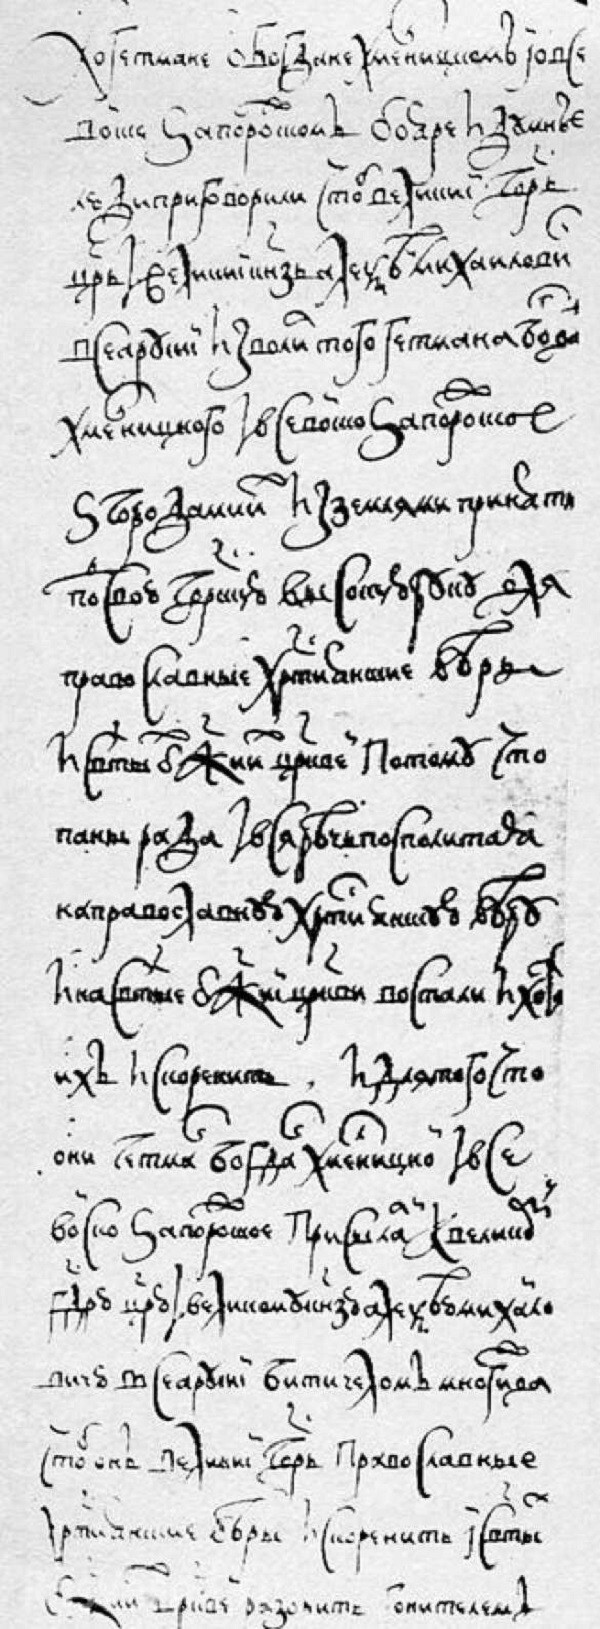 А о гетмане о Богдане Хмелницкомъ и о все
войске Запорожскомъ бояре и думные
люди приговорили чтоб великий гсдрь
црь и великий кнзь Алексѣй Михаилович
всеа Русии изволил того гетмана Богдана
Хмелницкого и все войско Запорожское
з городами их и з землями принять
под свою гсдрскую высокую руку для
православные хрстиянские вѣры
и святых бжиих црквей потому что
паны рада и вся Рѣчь посполитая
на православную хрстиянскую вѣру
и на святые бжии цркви востали и хотят
ихъ искоренить и для того что
они гетман Богдан Хмелницкой и все
войско Запорожское присылали к великому
гсдрю црю и великому кнзю Алексѣю Михаило
вичю всеа Русии бити челомъ многижда
чтоб онъ великий гсдрь православные
хрстиянские вѣры искоренить и святых
бжиих црквей разорить гонителемъ